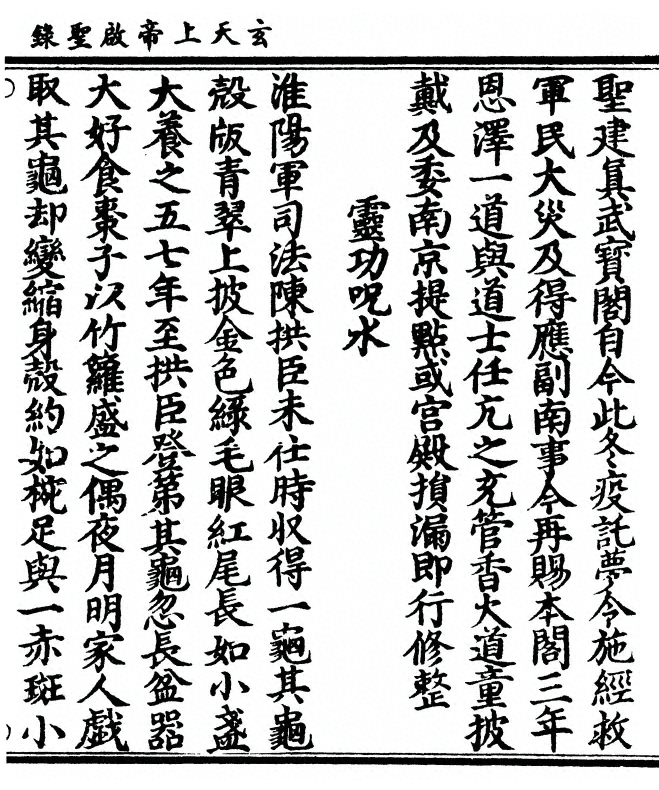 玄天上帝啟聖錄
聖建真武寶閣自今此冬疫託夢令施經救
軍民大災及得應副南事今再賜本閣三年
恩澤一道與道士任亢之充管香火道童披
戴及委南京提點或宮殿損漏即行修整
靈功呪水
淮陽軍司法陳拱臣未仕時收得一龜其龜
殼版青翠上披金色綠毛眼紅尾長如小盞
大養之五七年至拱臣登第其龜忽長盆器
大好食棗子以竹籮盛之偶夜月明家人戲
取其龜却變縮身殼約如椀足與一赤斑小